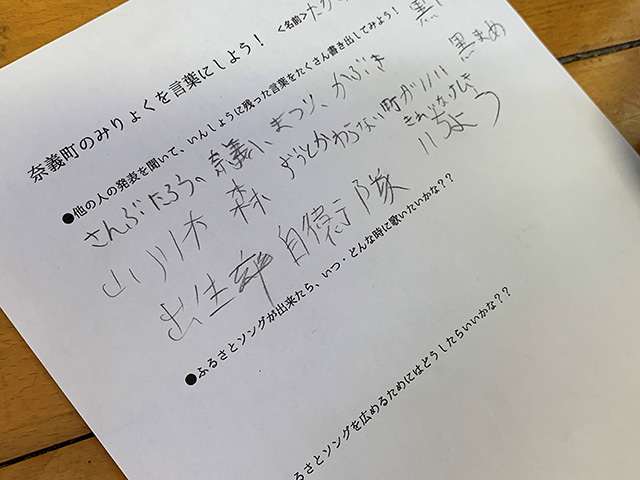 奈義町のみりょくを言葉にしよう！ <名前>
●他の人の発表を聞いて、いんしょうに残った言葉をたくさん書き出してみよう！
さんぶたろう、奈義い、まつり、かぶき 黒まめ
山 川 木 森 ずっとかわらない町がいい きれいなけしき
出生率 自衛隊 いちょう
●ふるさとソングが出来たら、いつ・どんな時に歌いたいかな？？
ふるさとソングを広めるためにはどうしたらいいかな？？